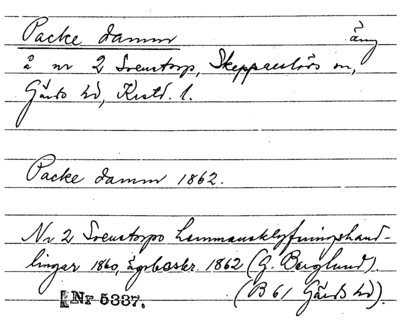 Packe damm äng
å nr 2 Svenstorp, Skepparslövs sn,
Gärds hd, Krstd. l.
Packe damm 1862.
Nr 2 Svenstorps hemmansklyfningshand-
lingar 1860, ägobeskr. 1862 (G. Berglund).
Nr 5337. (B 61 Gärds hd).